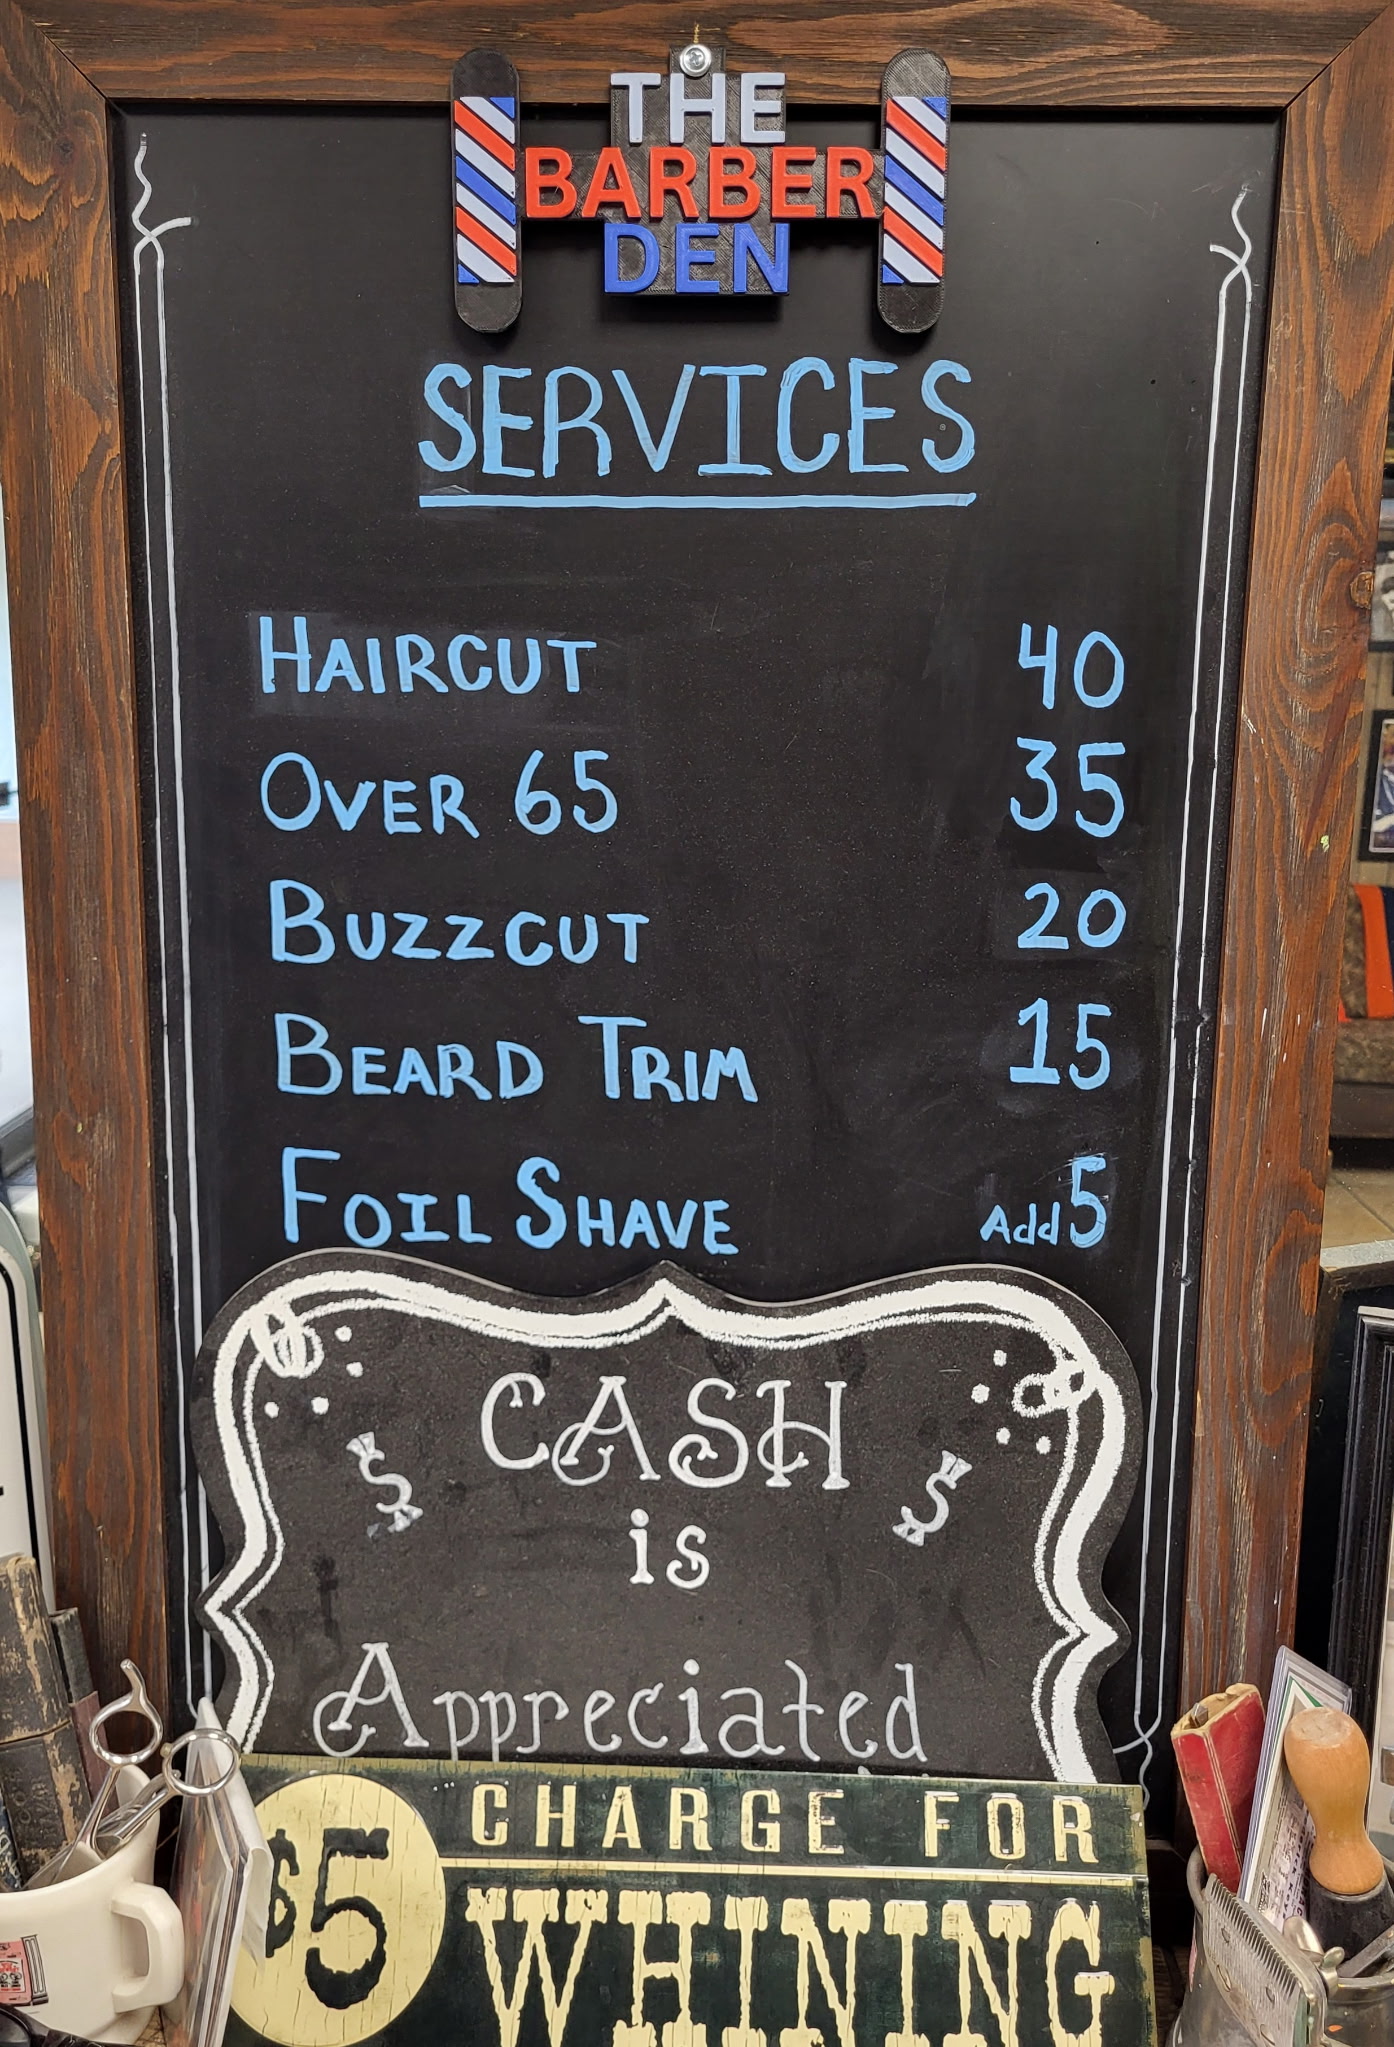 THE
BARBER
DEN
SERVICES
HAIRCUT 40
OVER 65 35
BUZZCUT 20
BEARD TRIM 15
FOIL SHAVE Add 5
CASH
$ $
is
Appreciated
$5 CHARGE FOR
WHINING